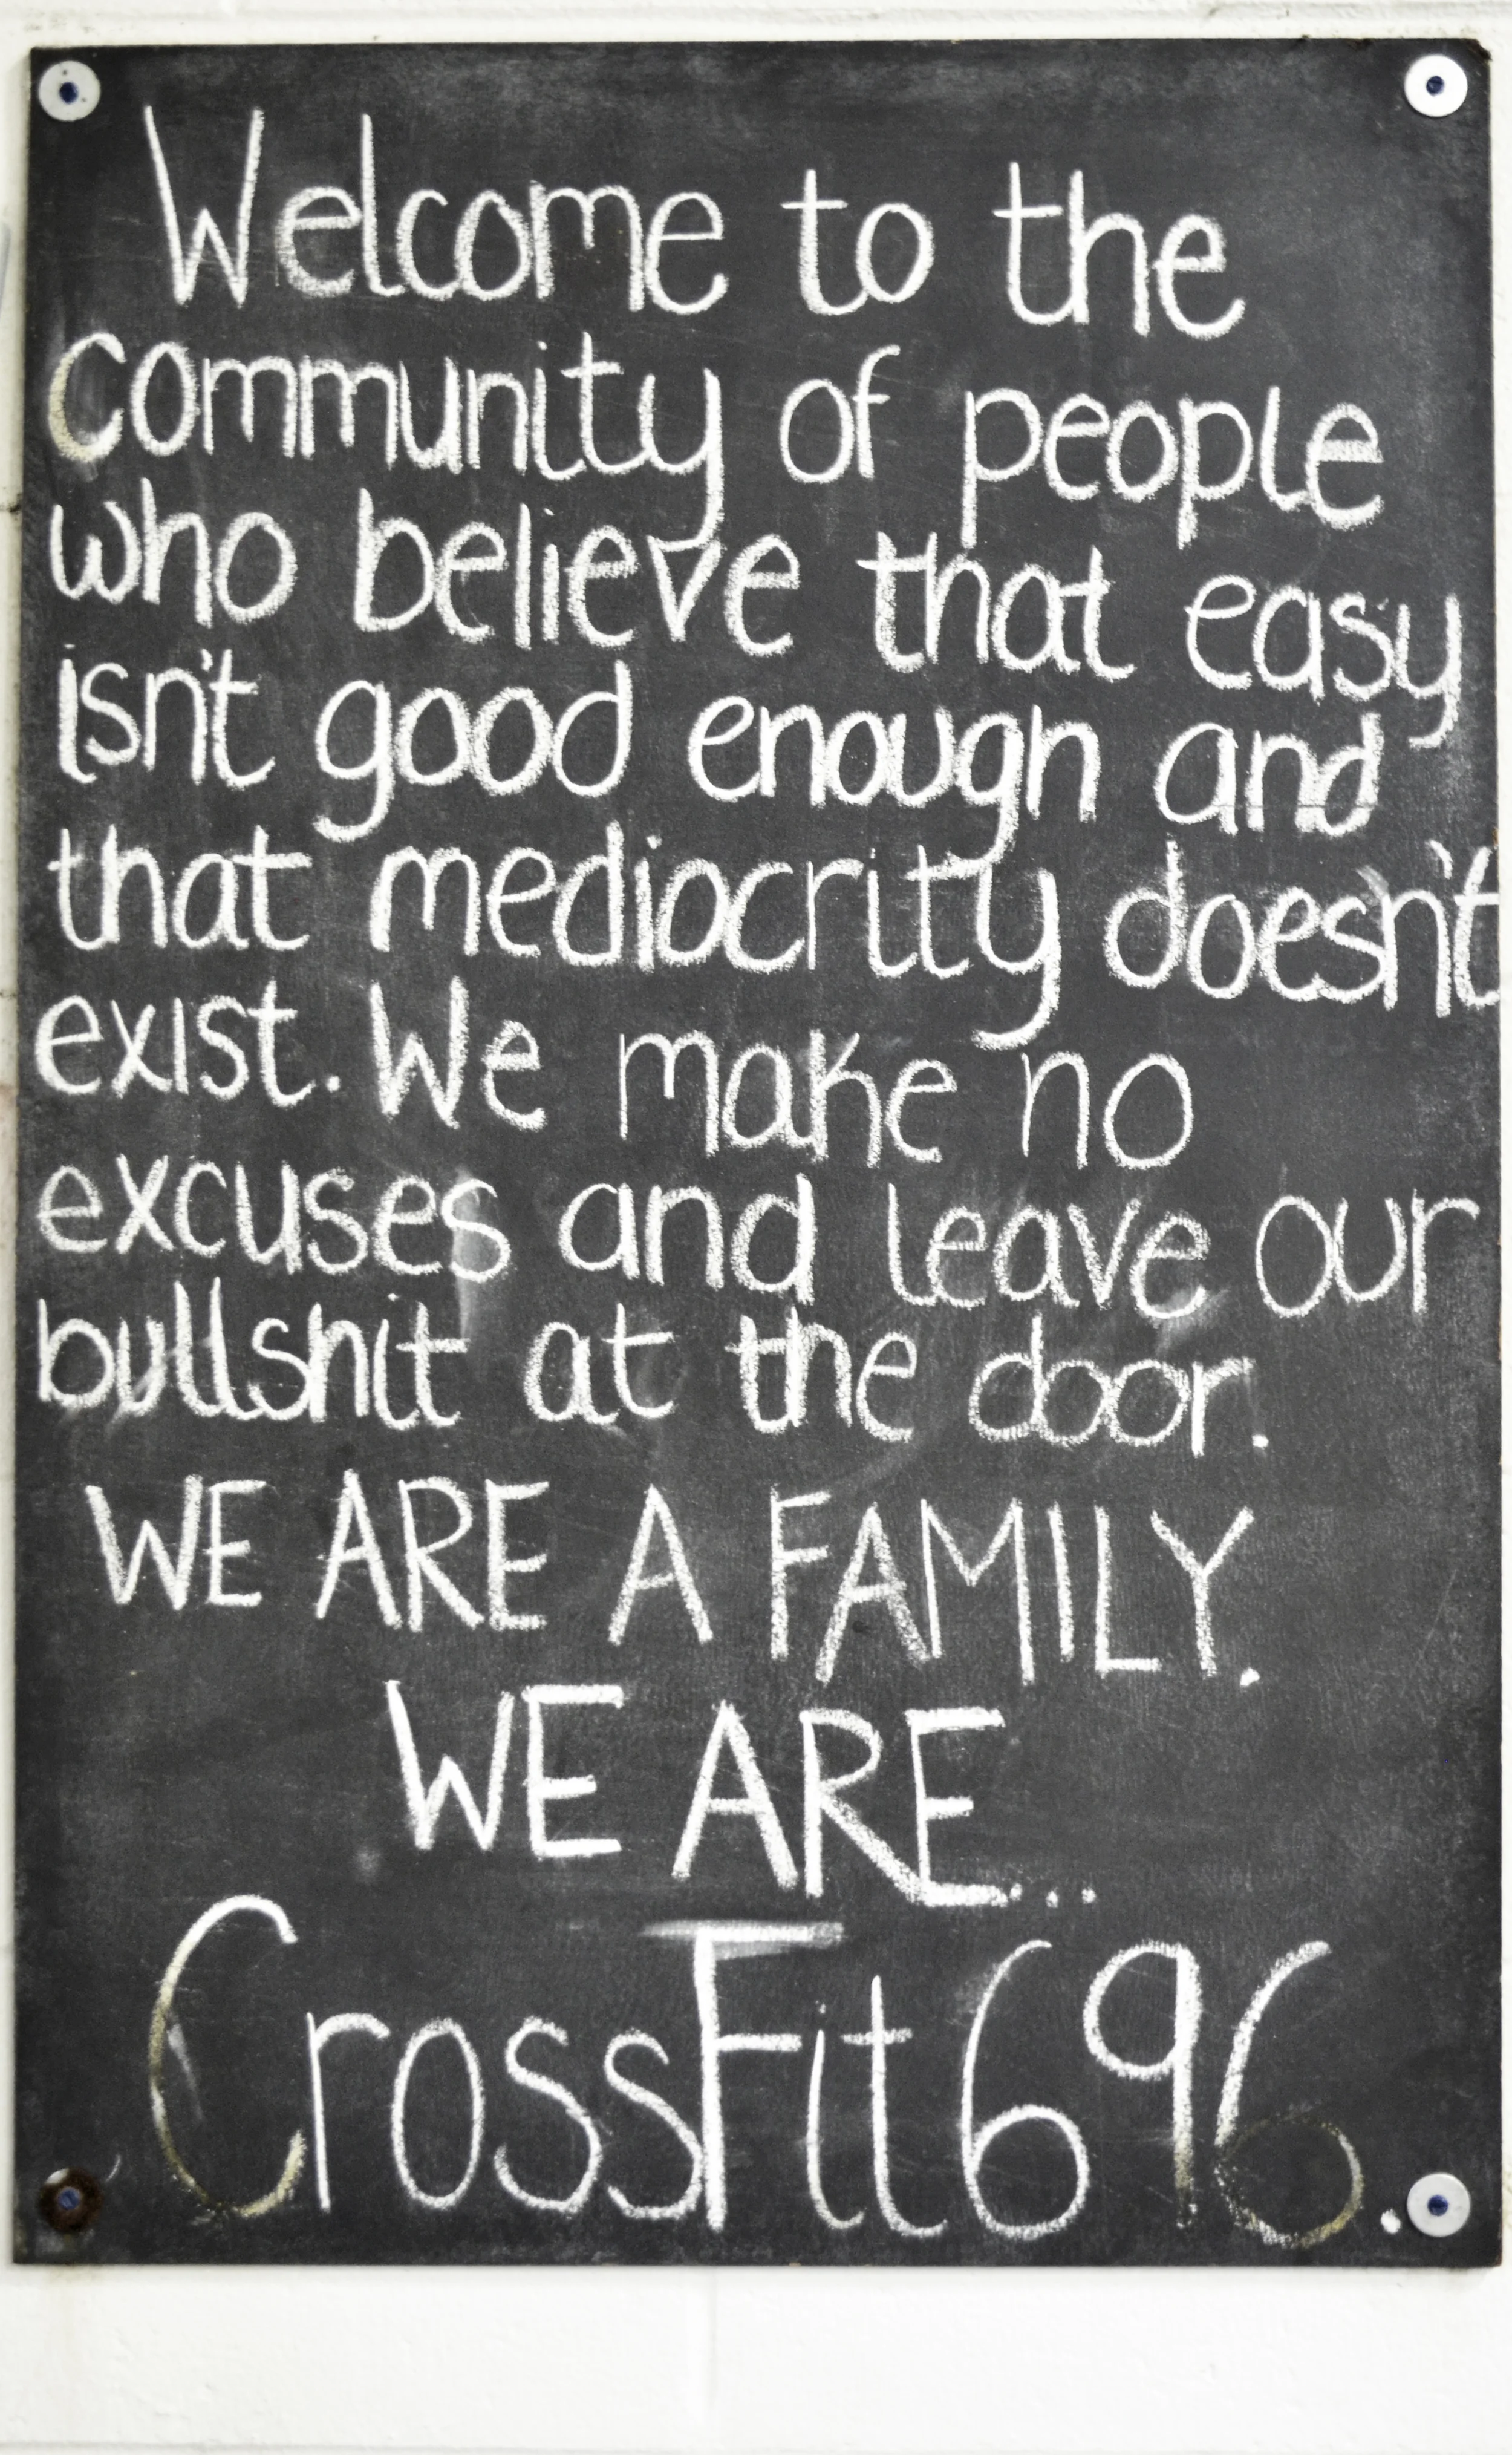 Welcome to the
community of people
who believe that easy
isn't good enough and
that mediocrity doesn't
exist. We make no
excuses and leave our
bullshit at the door.
WE ARE A FAMILY.
WE ARE...
CrossFit696.